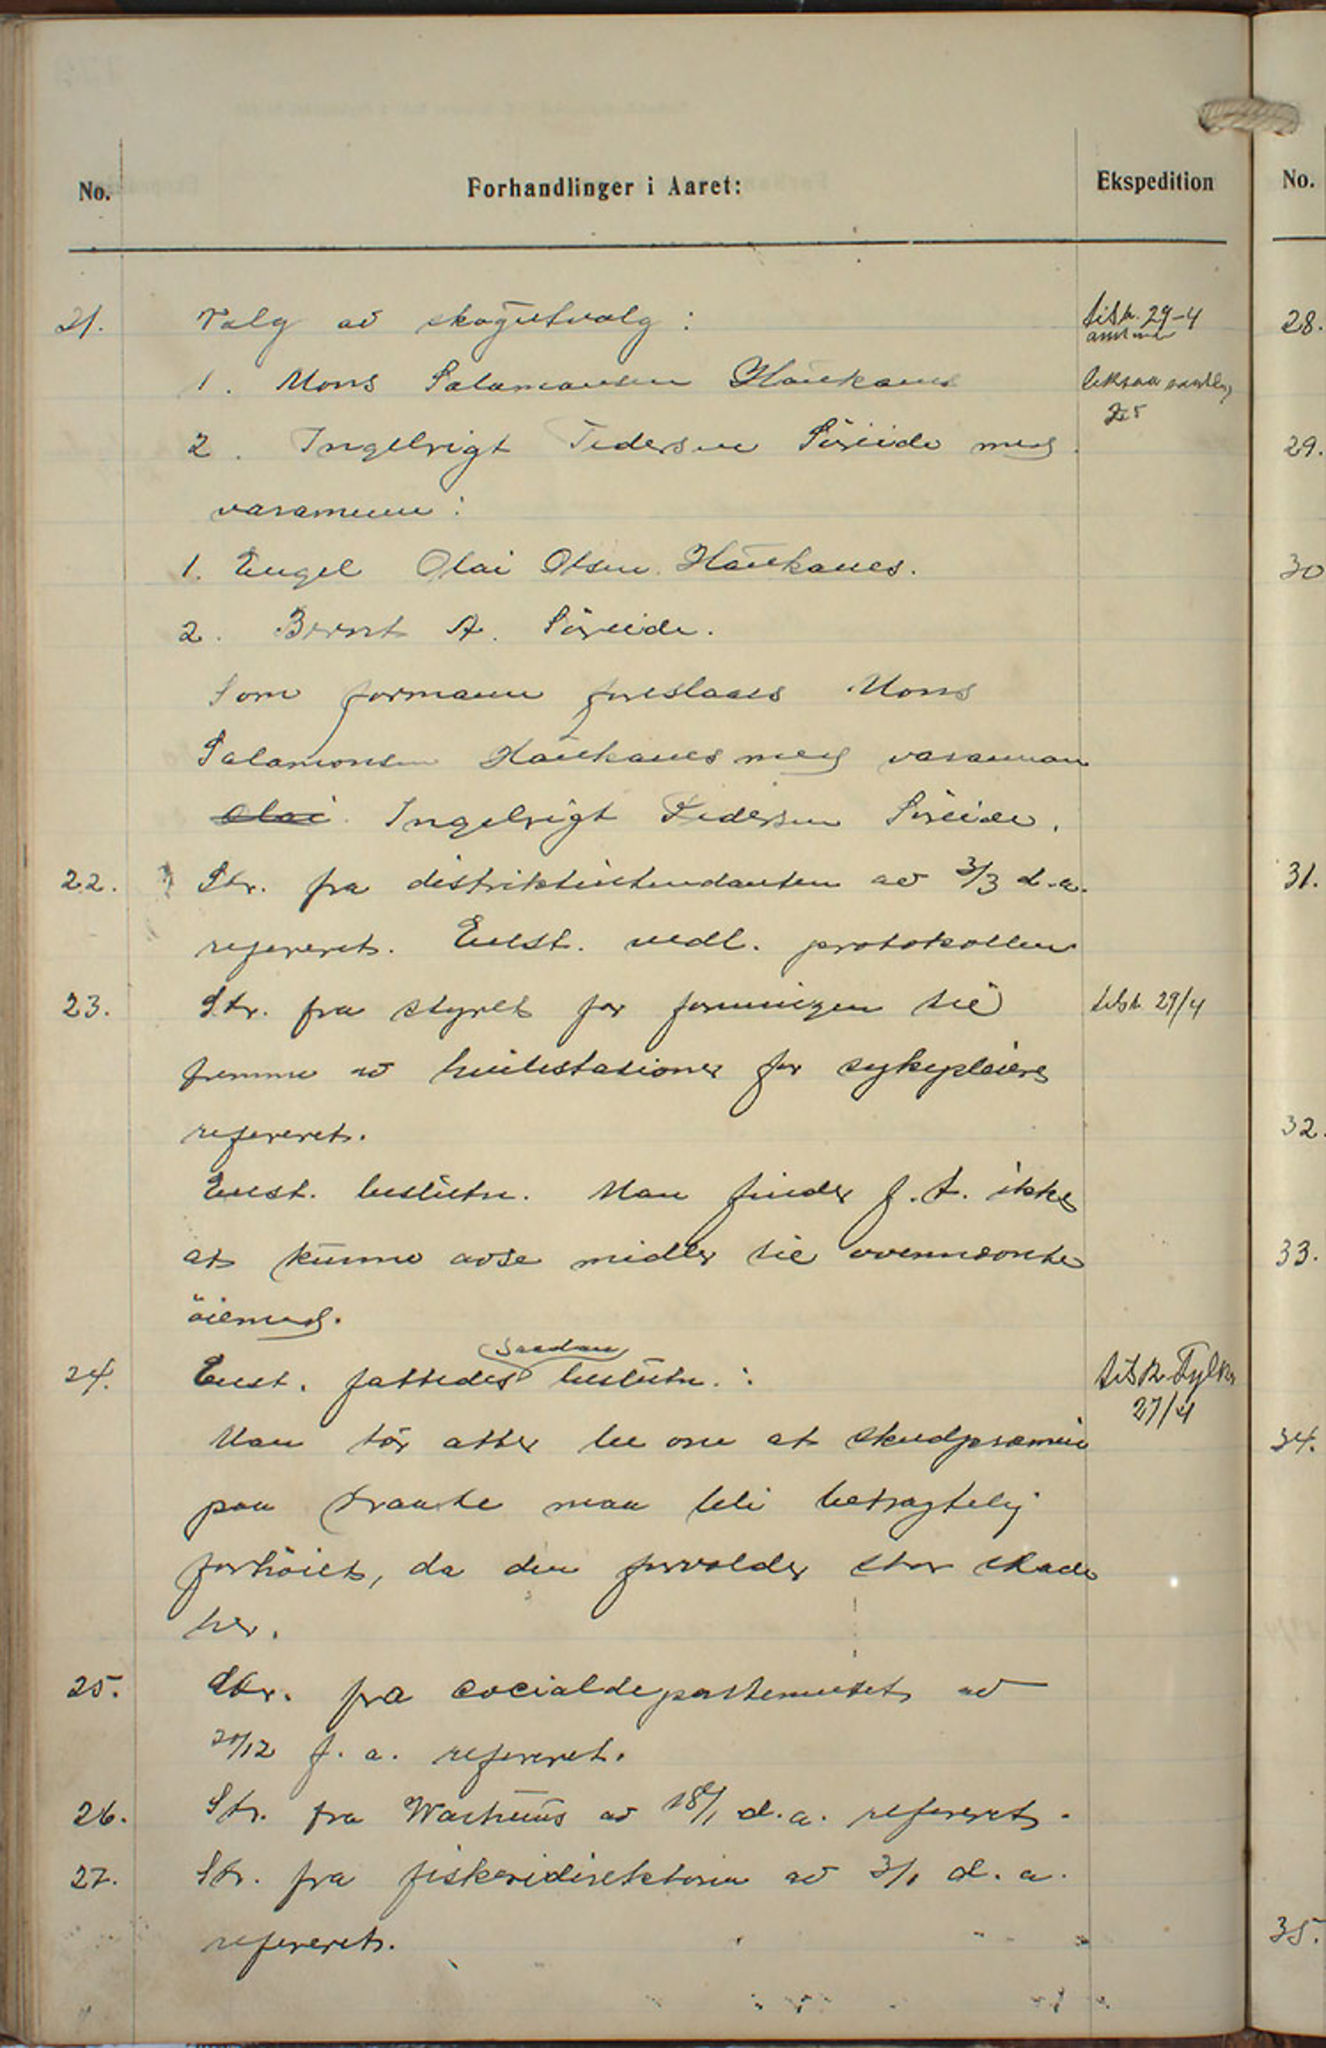 No. Forhandlinger i Aaret: Ekspedition No.
21. Valg av skogutvalg: 29-4 28.
1. Mons Salamonsen Haukanes
2. Ingebrigt Pedersen Söreide med 29.
varamenn:
1. Engel Olai Olsen Haukanes. 30
2. Bernt A. Söreide.
Som formann foreslaaes Mons
Salamonsen Haukanes med varamann
Olai Ingebrigt Pedersen Söreide.
22. Skr. fra distriktsintendanten av 3/3 d.a. 31.
refereret. Enst. vedl. protokollen
23. Skr. fra styret for foreningen til tilsk. 29/4
fremme av hvilestationer for sykepleiere
refereret. 32.
Enst. beslutn. Man finder f.t. ikke
at kunne avse midler til ovennævnte 33.
öiemed.
24. Enst. fattedes saadan beslutn.: tilsk. Fylke
27/4
Man tör atter be om at skudpræmie 34.
paa kraake maa bli betragtelig
forhöiet, da den forvolder stor skade
her.
25. Skr. fra socialdepartementet av
/12 f.a. refereret.
26. Skr. fra av 18/1 d.a. refereret.
27. Skr. fra fiskeridirektören av 3/1 d.a.
refereret. 35.